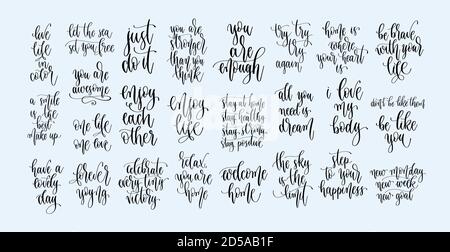 live
life
in
color
let the sea
set you free
just
do it
you are
stronger
than
you think
you
are
enough
try
try
try
again
home is
where
your heart
is
be brave
with your
life
you are
awesome
a smile
is the
best
make up
one life
one love
enjoy
each
other
enjoy
life
stay at home
stay healthy
stay strong
stay positive
all you
need is
dream
i love
my
body
don't be like them
be like
you
have a
lovely
day
forever
young
celebrate
every tiny
victory
relax
you are
home
welcome
home
the sky
is the
limit
step
to your
happiness
new monday
new week
new goal
alamy
Image ID: 2D5AB1F
www.alamy.com